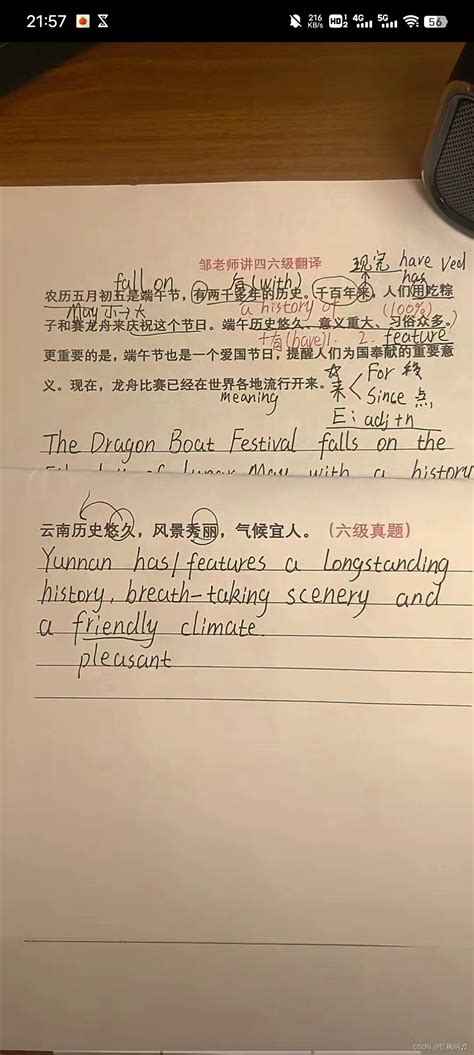 21:57
216 KB/s HD 1 2 4G 5G 56
邹老师讲四六级翻译
现完 have Ved
fall on 有(with) has
农历五月初五是端午节，有两千多年的历史。千百年来，人们用吃粽
May 小→大 a history of (100%)
子和赛龙舟来庆祝这个节日。端午历史悠久、意义重大、习俗众多。
十有(have)1. 2. feature
更重要的是，端午节也是一个爱国节日，提醒人们为国奉献的重要意
义。现在，龙舟比赛已经在世界各地流行开来。
For 段
来 Since 点
meaning
E: adj+n
The Dragon Boat Festival falls on the
of lunar May with a history
云南历史悠久，风景秀丽，气候宜人。（六级真题）
Yunnan has/features a longstanding
history, breath-taking scenery and
a friendly climate.
pleasant
CSDN @忆枫呐♬